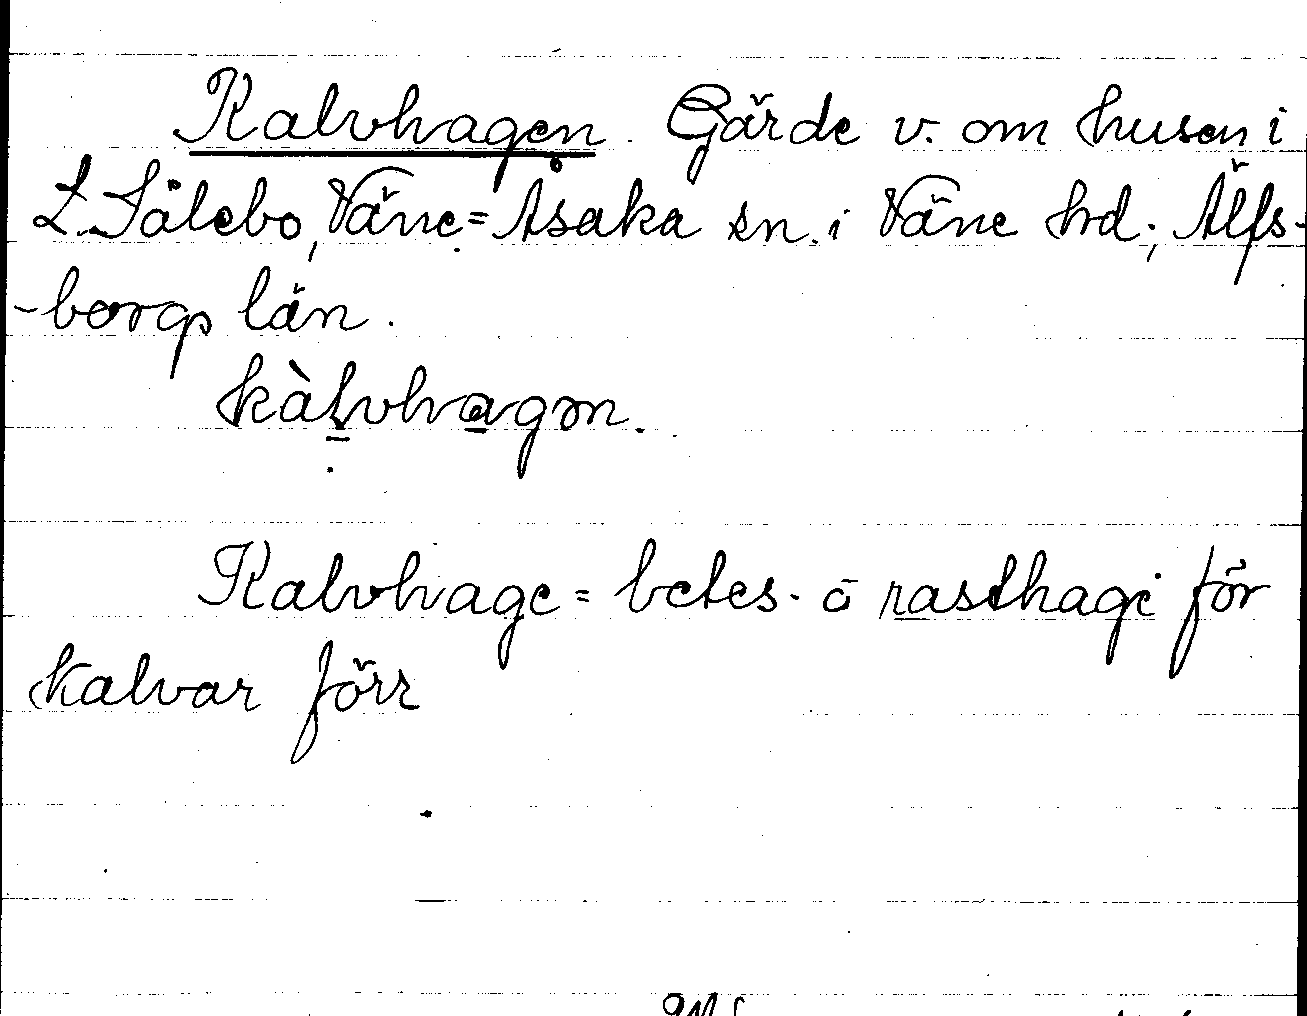 Kalvhagen. Gärde v. om husen i
L. Sålebo, Väne=Åsaka sn. i Väne hrd., Älfs-
-borgs län.
kàl̠vha̠gən.
Kalvhage = betes- o rasthage för
kalvar förr